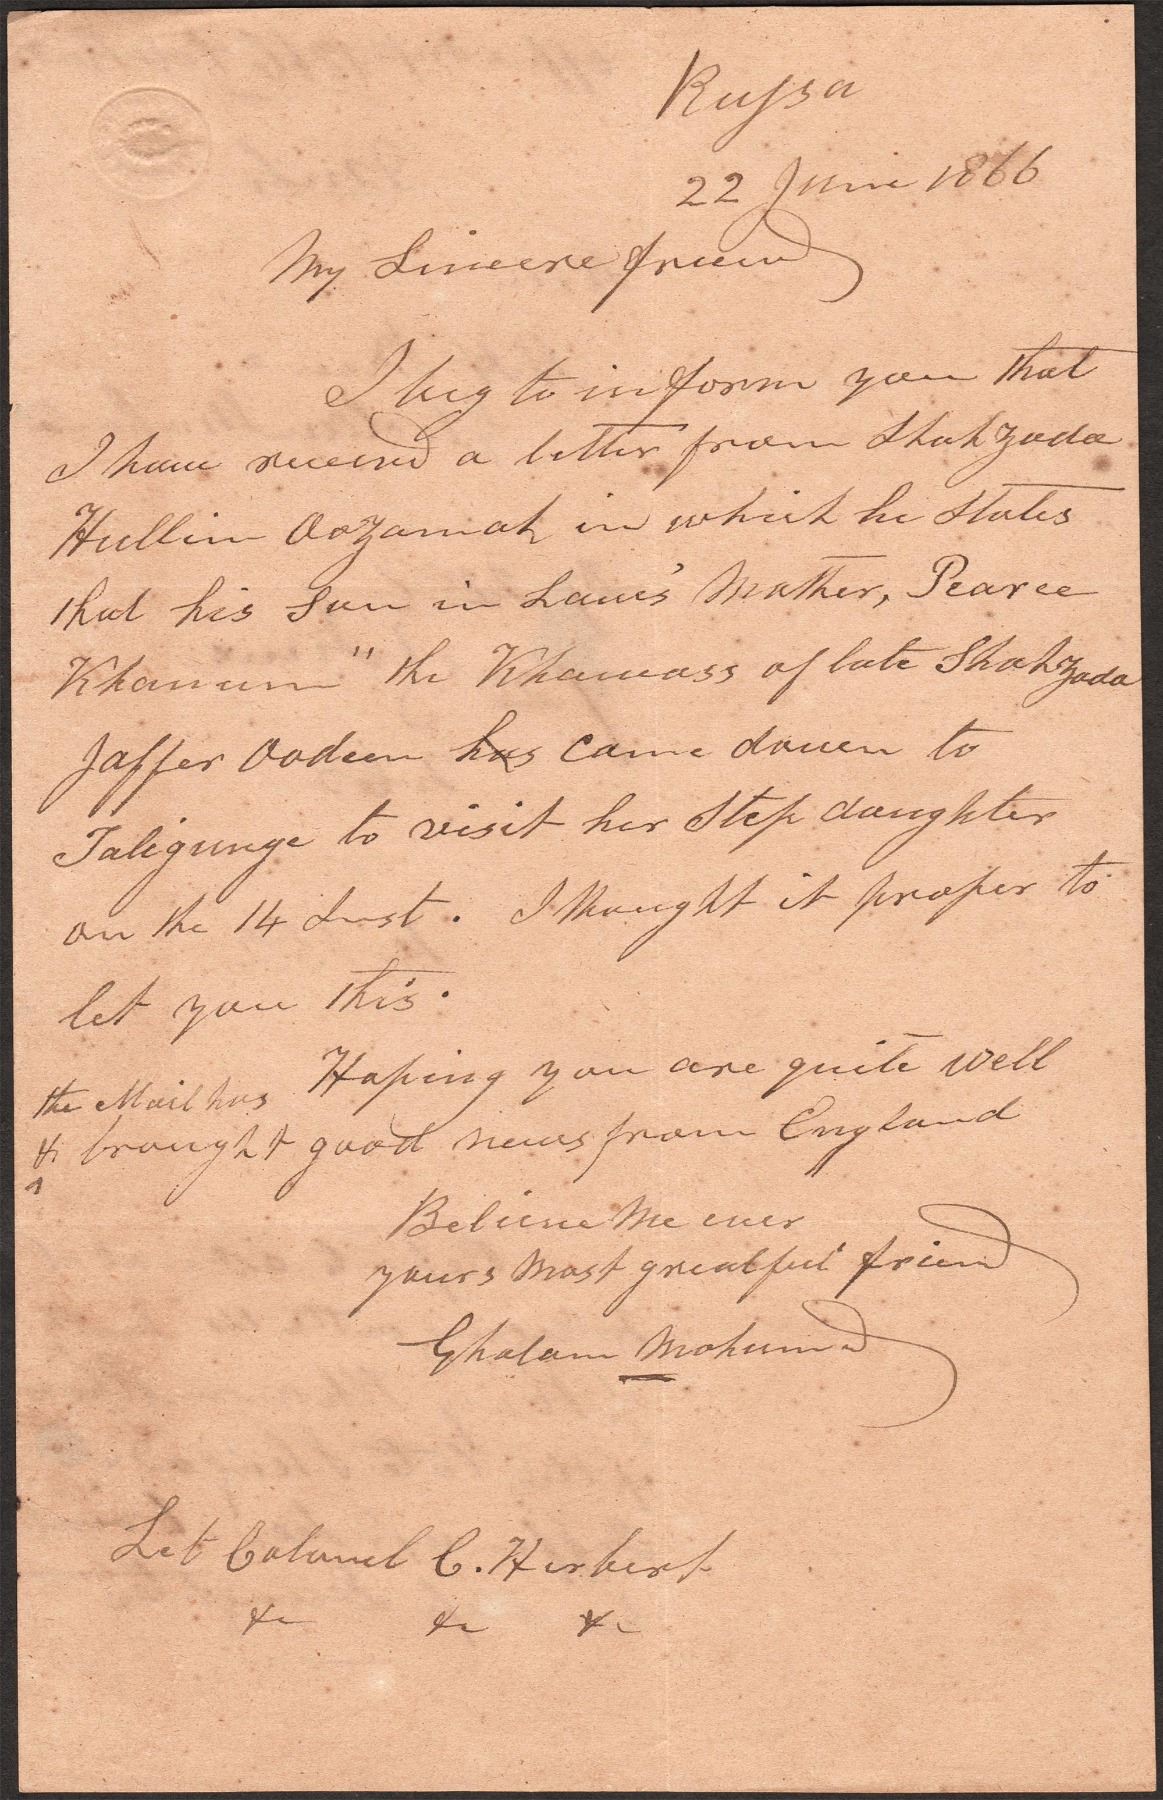 Russa
22 June 1866
My Sincere friend
I beg to inform you that
I have received a letter from Shahzada
Hullim Oozamah in which he States
that his Son in Laws' Mother, Pearee
Khanum" the Khawass of late Shahzada
Jaffer Oodeen has came down to
Taligunge to visit her Step daughter
on the 14 Inst. I thought it proper to
let you this.
Hoping you are quite well
the Mail has
& brought good news from England
Believe Me ever
yours Most greatful friend
Gholam Mohumd
Let Colonel C. Herbert
&c &c &c